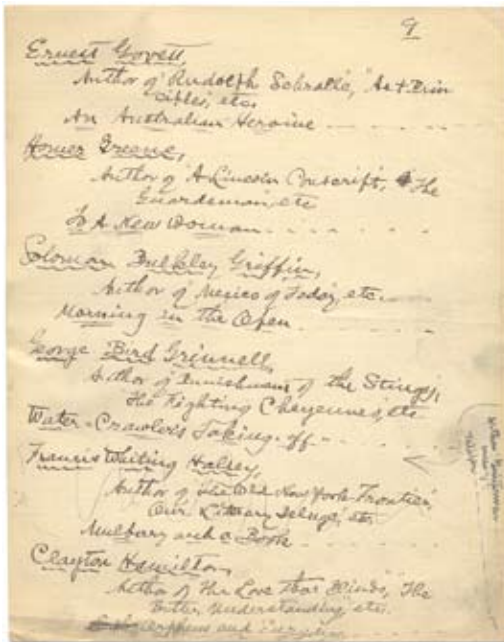 9
Ernest Govett,
Author of "Rudolph
etc.
An Australian Heroine
Homer Greene,
Author of "A Lincoln Conscript," "The
Guardsman," etc
To A New Woman
Solomon Bulkley Griffin,
Author of Mexico of Today, etc.
Morning in the Open
George Bird Grinnell,
Author of Punishment of the Stingy,
The Fighting Cheyennes, etc
Water-Crawler's Taking-off
Francis Whiting Halsey,
Author of "The Old New York Frontier,"
Our Literary Deluge, etc.
Mulberry and a Book
Clayton Hamilton,
Author of The Love that Blinds, The
Bitter Understanding, etc.
Orpheus and